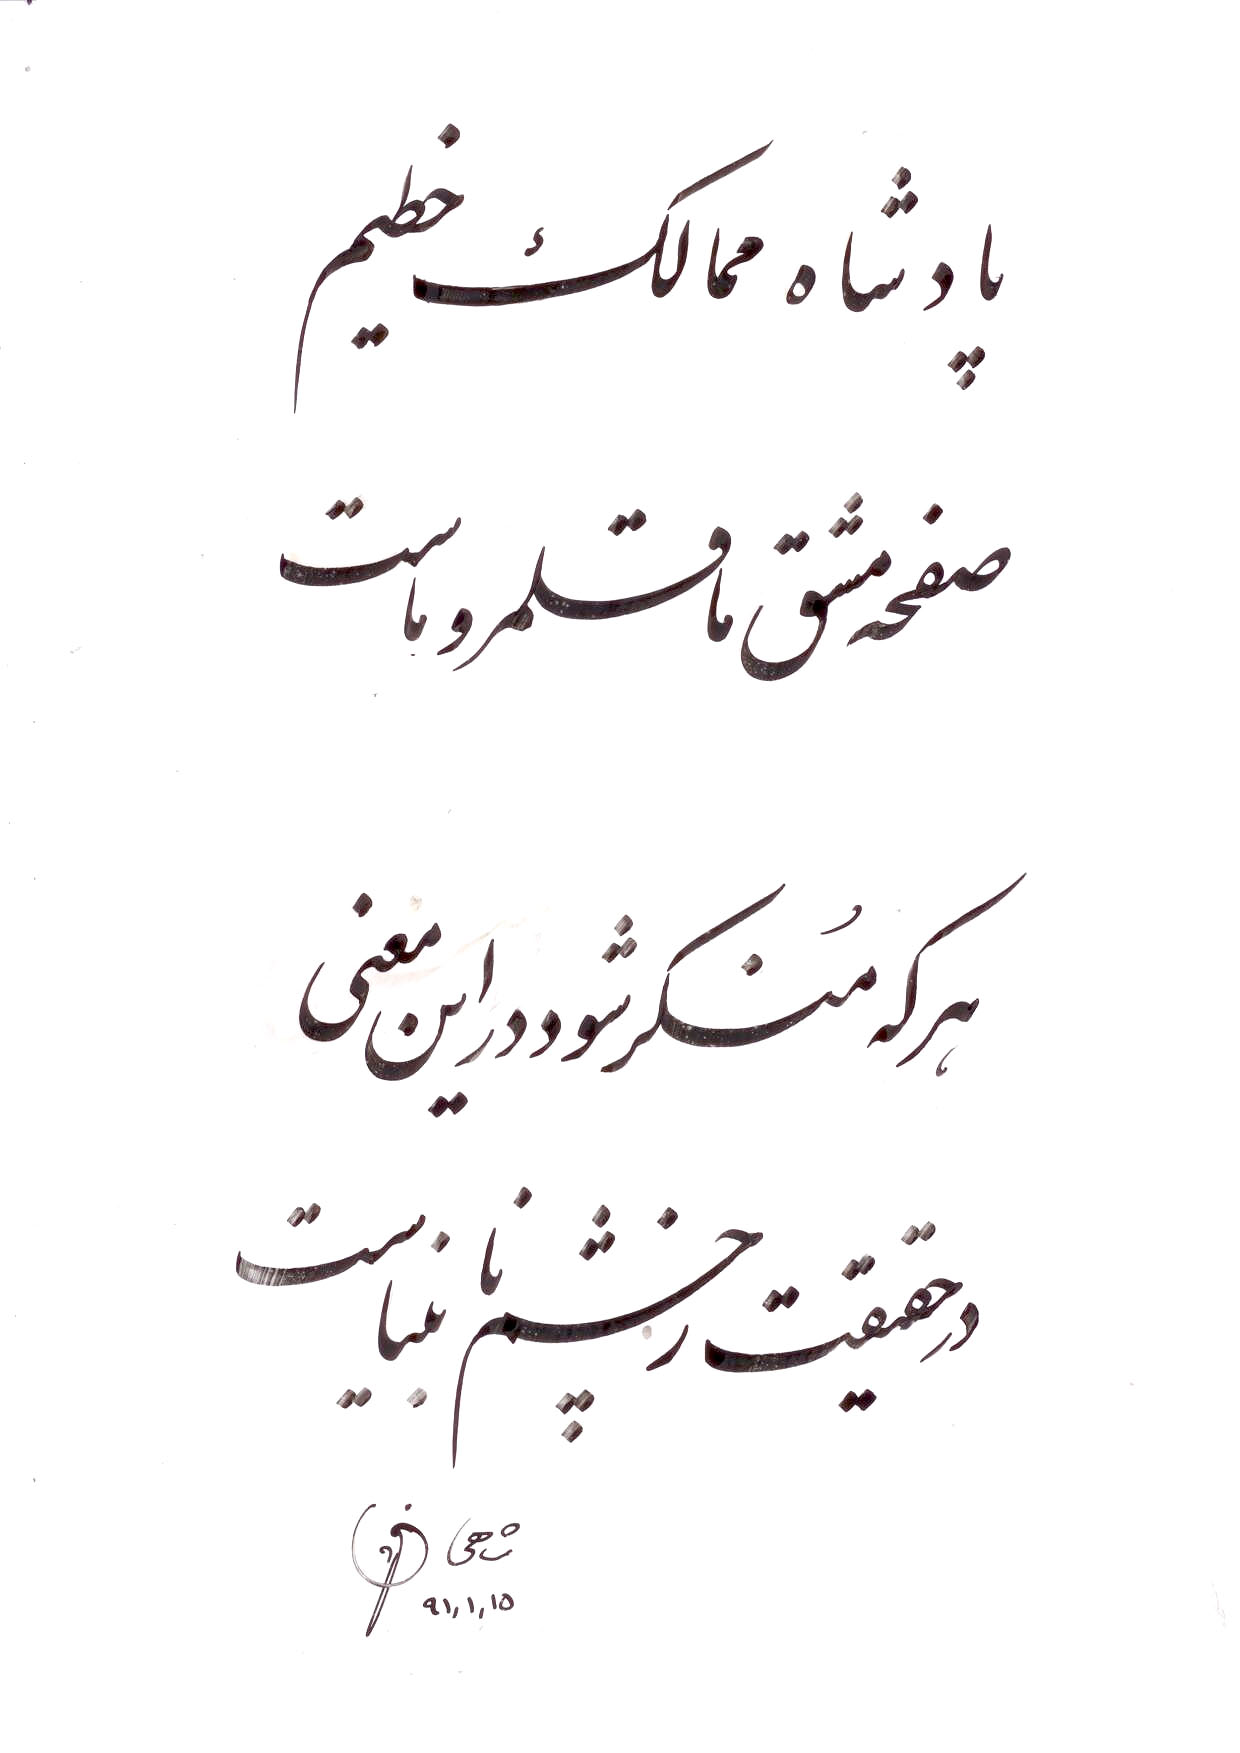 پادشاه ممالک خطیم
صفحه مشق ما قلمرو ماست
هر که مُنکر شود در این معنی
در حقیقت ز چشم نابیناست
۹۱,۱,۱۵